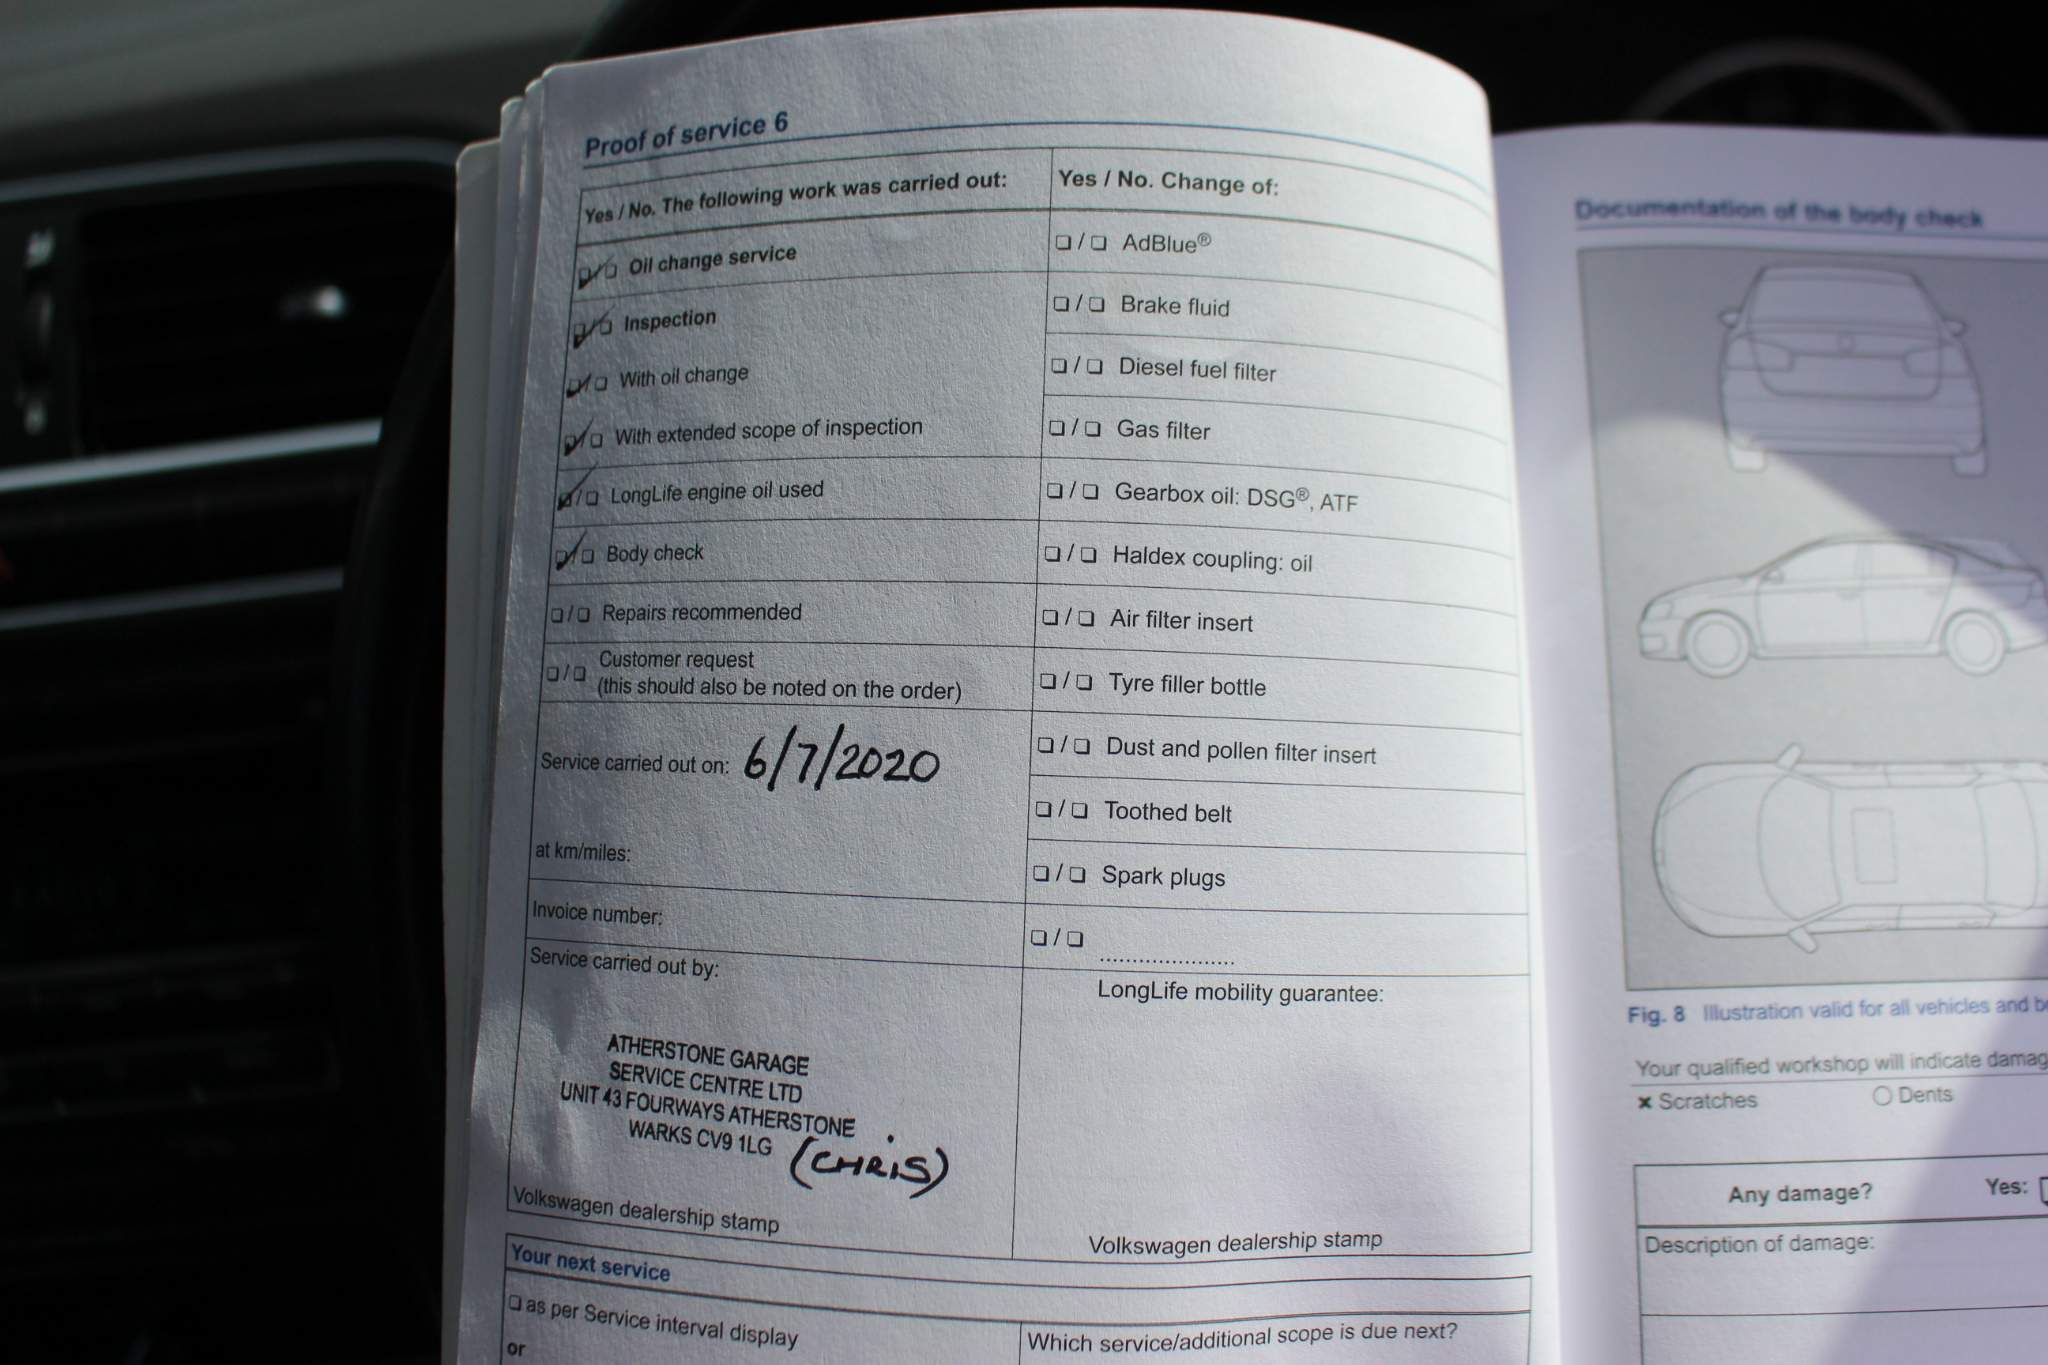 Proof of service 6
Yes / No. The following work was carried out:
❑/❑ Oil change service
❑/❑ Inspection
❑/❑ With oil change
❑/❑ With extended scope of inspection
❑/❑ LongLife engine oil used
❑/❑ Body check
❑/❑ Repairs recommended
❑/❑ Customer request
(this should also be noted on the order)
Service carried out on: 6/7/2020
at km/miles:
Invoice number:
Service carried out by:
ATHERSTONE GARAGE
SERVICE CENTRE LTD
UNIT 43 FOURWAYS ATHERSTONE
WARKS CV9 1LG (CHRIS)
Volkswagen dealership stamp
Yes / No. Change of:
❑/❑ AdBlue®
❑/❑ Brake fluid
❑/❑ Diesel fuel filter
❑/❑ Gas filter
❑/❑ Gearbox oil: DSG®, ATF
❑/❑ Haldex coupling: oil
❑/❑ Air filter insert
❑/❑ Tyre filler bottle
❑/❑ Dust and pollen filter insert
❑/❑ Toothed belt
❑/❑ Spark plugs
❑/❑ .....................
LongLife mobility guarantee:
Volkswagen dealership stamp
Your next service
❑ as per Service interval display
or
Which service/additional scope is due next?
Documentation of the body check
Fig. 8 Illustration valid for all vehicles and
Your qualified workshop will indicate
× Scratches ○ Dents
Any damage? Yes:
Description of damage: